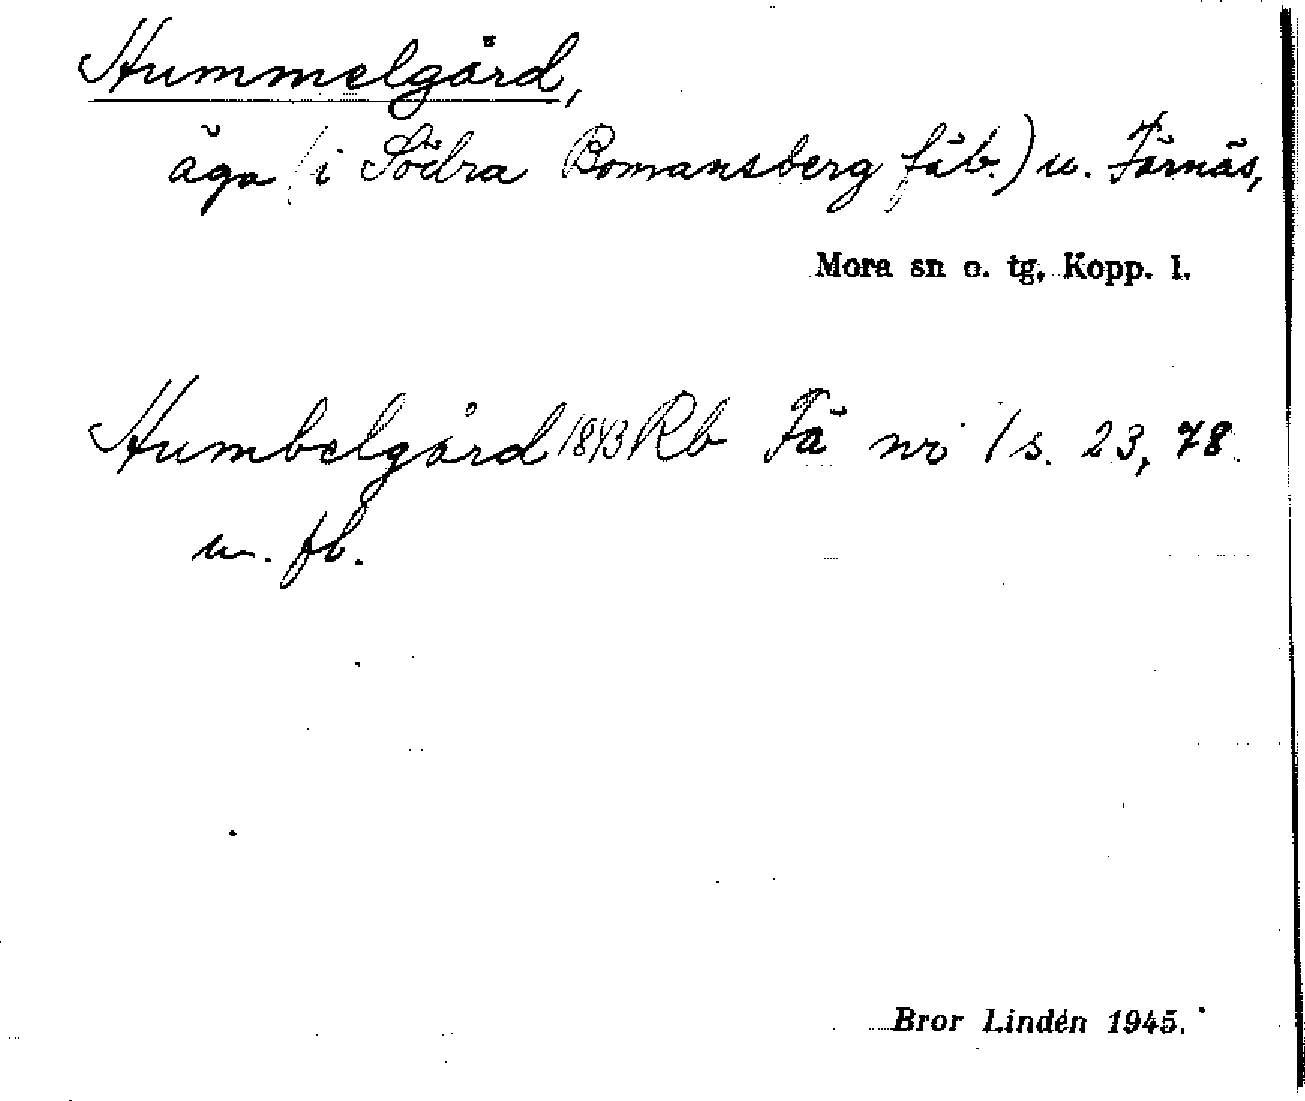 Hummelgård,
äga (i Södra Bomansberg fäb.) u. Färnäs,
Mora sn o. tg, Kopp. l.
Humbelgård 1843 Rb Fä nö 1 s. 23, 78
m. fl.
Bror Lindén 1945.